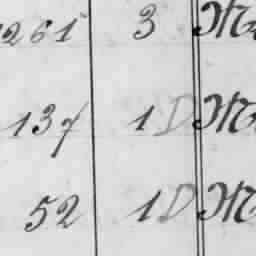 261 3
137 1 D
52 1 D